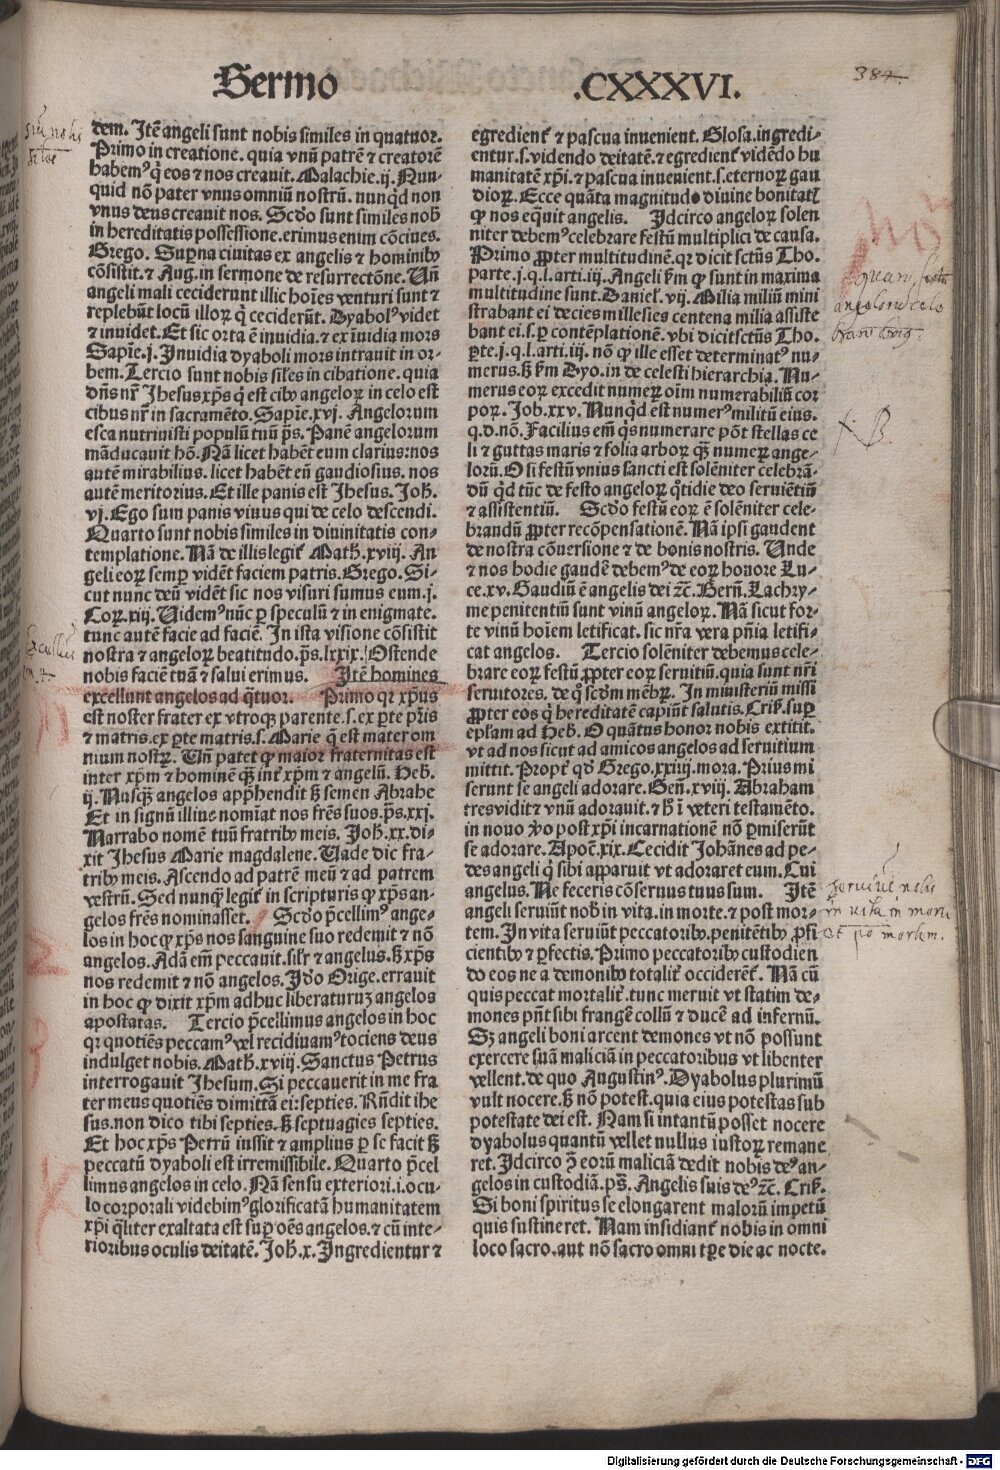 Sermo .CXXXVI.
384
dem. Itē angeli sunt nobis similes in quatuor.
Primo in creatione. quia vnū patrē ⁊ creatorē
habemꝰ q̇ eos ⁊ nos creauit. Malachie.ij. Nun-
quid nō pater vnus omniū nostrū. nunqͥd non
vnus deus creauit nos. Scd̄o sunt similes nob̄
in hereditatis possessione. erimus enim cōciues.
Grego. Suꝑna ciuitas ex angelis ⁊ hominibꝰ
cōsistit. ⁊ Aug. in sermone de resurrectōne. Vn̄
angeli mali ceciderunt illic hoīes venturi sunt ⁊
replebūt locū illoꝝ q̇ ceciderūt. Dyabolꝰ videt
⁊ inuidet. Et sic orta ē inuidia. ⁊ ex īuidia mors
Sapīe.j. Inuidia dyaboli mors intrauit in or-
bem. Tercio sunt nobis sīles in cibatione. quia
dn̄s nr̄ Jhesus xp̄s q̇ est cibꝰ angeloꝝ in celo est
cibus nr̄ in sacramēto. Sapīe.xvj. Angelorum
esca nutriuisti populū tuū p̄s. Panē angelorum
māducauit hō. Nā licet habēt eum clarius: nos
autē mirabilius. licet habēt eū gaudiosius. nos
autē meritorius. Et ille panis est Jhesus. Joh̄.
vj. Ego sum panis viuus qui de celo descendi.
Quarto sunt nobis similes in diuinitatis con-
templatione. Nā de illis legit᷑ Math̄.xviij. An
geli eoꝝ semꝑ vidēt faciem patris. Grego. Si-
cut nunc deū vidēt sic nos visuri sumus eum.j.
Coꝝ.xiij. Uidemꝰ nūc ꝑ speculū ⁊ in enigmate.
tunc autē facie ad faciē. In ista visione cōsistit
nostra ⁊ angeloꝝ beatitudo. p̄s.lxxix. Ostende
nobis faciē tuā ⁊ salui erimus. Itē homines
excellunt angelos ad qͣtuor. Primo qꝛ xp̄us
est noster frater ex vtroqꝫ parente.s. ex ꝑte pr̄is
⁊ matris. ex ꝑte matris.s. Marie q̄ est mater om
nium nostꝝ. Vn̄ patet ꝙ maior fraternitas est
inter xp̄m ⁊ hominē qꝫ int᷑ xp̄m ⁊ angelū. Heb̄.
ij. Nusqꝫ angelos app̄hendit sꝫ semen Abrahe
Et in signū illius nomīat nos frēs suos. p̄s.xxj.
Narrabo nomē tuū fratribꝰ meis. Joh̄.xx. di-
xit Jhesus Marie magdalene. Vade dic fra-
tribꝰ meis. Ascendo ad patrē meū ⁊ ad patrem
vestrū. Sed nunqͣ legit᷑ in scripturis ꝙ xp̄s an-
gelos frēs nominasset. Scd̄o p̄cellimꝰ ange-
los in hoc ꝙ xp̄s nos sanguine suo redemit ⁊ nō
angelos. Adā em̄ peccauit. sil̄r ⁊ angelus. sꝫ xp̄s
nos redemit ⁊ nō angelos. Id̄o Orige. errauit
in hoc ꝙ dixit xp̄m adhuc liberaturuꝫ angelos
apostatas. Tercio p̄cellimus angelos in hoc
qꝛ quotiēs peccamꝰ vel recidiuamꝰ tociens deus
indulget nobis. Math̄.xviij. Sanctus Petrus
interrogauit Jhesum. Si peccauerit in me fra
ter meus quotiēs dimittā ei: septies. Rn̄dit ihe
sus. non dico tibi septies. sꝫ septuagies septies.
Et hoc xp̄s Petrū iussit ⁊ amplius ꝑ se facit sꝫ
peccatū dyaboli est irremissibile. Quarto p̄cel
limus angelos in celo. Nā sensu exteriori.i. ocu-
lo corporali videbimꝰ glorificatā humanitatem
xp̄i qͣliter exaltata est suꝑ oēs angelos. ⁊ cū inte-
rioribus oculis deitatē. Joh̄.x. Ingredientur ⁊
egredient᷑ ⁊ pascua inuenient. Glosa. ingredi-
entur.s. videndo deitatē. ⁊ egredient᷑ vidēdo hu
manitatē xp̄i. ⁊ pascua inuenient.s. eternoꝝ gau
dioꝝ. Ecce quāta magnitudo diuine bonitatꝭ
ꝙ nos eq̄uit angelis. Idcirco angeloꝝ solen
niter debemꝰ celebrare festū multiplici de causa.
Primo ꝓpter multitudinē. qꝛ dicit sctūs Tho.
parte.j.q.l.arti.iij. Angeli s̄m ꝙ sunt in maxima
multitudine sunt. Daniel̓. vij. Milia miliū mini
strabant ei ⁊ decies millesies centena milia assiste
bant ei.s. ꝑ contēplationē. vbi dicit sctūs Tho.
ꝑte.j.q.l.arti.iij. nō ꝙ ille esset determinatꝰ nu-
merus. sꝫ s̄m Dyo. in de celesti hierarchia. Nu-
merus eoꝝ excedit numeꝝ oīm numerabiliū cor
poꝝ. Job.xxv. Nunqͥd est numerꝰ militū eius.
q.d. nō. Facilius em̄ qͥs numerare pōt stellas ce
li ⁊ guttas maris ⁊ folia arboꝝ qꝫ numeꝝ ange-
lorū. O si festū vnius sancti est solēniter celebrā-
dū qͥd tūc de festo angeloꝝ qͦtidie deo seruiētiū
⁊ assistentiū. Scd̄o festū eoꝝ ē solēniter cele-
brandū ꝓpter recōpensationē. Nā ipsi gaudent
de nostra cōuersione ⁊ de bonis nostris. Unde
⁊ nos hodie gaudē debemꝰ de eoꝝ honore Lu-
ce.xv. Gaudiū ē angelis dei ⁊c̄. Bern̄. Lachry-
me penitentiū sunt vinū angeloꝝ. Nā sicut for-
te vinū hoīem letificat. sic nr̄a vera pn̄ia letifi-
cat angelos. Tercio solēniter debemus cele-
brare eoꝝ festū ꝓpter eoꝝ seruitiū. quia sunt nr̄i
seruitores. de qͦ scd̄m mēbꝝ. In ministeriū missi
ꝓpter eos q̇ hereditatē capiūt salutis. Criß. suꝑ
epl̄am ad Heb̄. O quātus honor nobis extitit.
vt ad nos sicut ad amicos angelos ad seruitium
mittit. Propt᷑ qd̄ Grego.xxiij. mora. Prius mi
serunt se angeli adorare. Gen̄.xviij. Abraham
tres vidit ⁊ vnū adorauit. ⁊ h̄ ī veteri testamēto.
in nouo v̓o post xp̄i incarnationē nō ꝑmiserūt
se adorare. Apoc̄.xix. Cecidit Johānes ad pe-
des angeli q̇ sibi apparuit vt adoraret eum. Cui
angelus. Ne feceris cōseruus tuus sum. Itē
angeli seruiūt nob̄ in vita. in morte. ⁊ post mor-
tem. In vita seruiūt peccatoribꝰ. penitētibꝰ ꝓfi
cientibꝰ ⁊ ꝑfectis. Primo peccatoribꝰ custodien
do eos ne a demonibꝰ totalit᷑ occiderēt᷑. Nā cū
quis peccat mortalit᷑. tunc meruit vt statim de-
mones pn̄t sibi frangē collū ⁊ ducē ad infernū.
Sꝫ angeli boni arcent demones vt nō possunt
exercere suā maliciā in peccatoribus vt libenter
vellent. de quo Augustinꝰ. Dyabolus plurimū
vult nocere. sꝫ nō potest. quia eius potestas sub
potestate dei est. Nam si intantū posset nocere
dyabolus quantū vellet nullus iustoꝝ remane
ret. Idcirco ꝯ̄ eorū maliciā dedit nobis deꝰ an-
gelos in custodiā. ps̄. Angelis suis deꝰ ⁊c̄. Criß.
Si boni spiritus se elongarent maloꝝ impetū
quis sustineret. Nam insidiant᷑ nobis in omni
loco sacro. aut nō sacro omni tꝑe die ac nocte.
seruiūt nobis
in vita in morte
et post mortem.
Digitalisierung gefördert durch die Deutsche Forschungsgemeinschaft - DFG